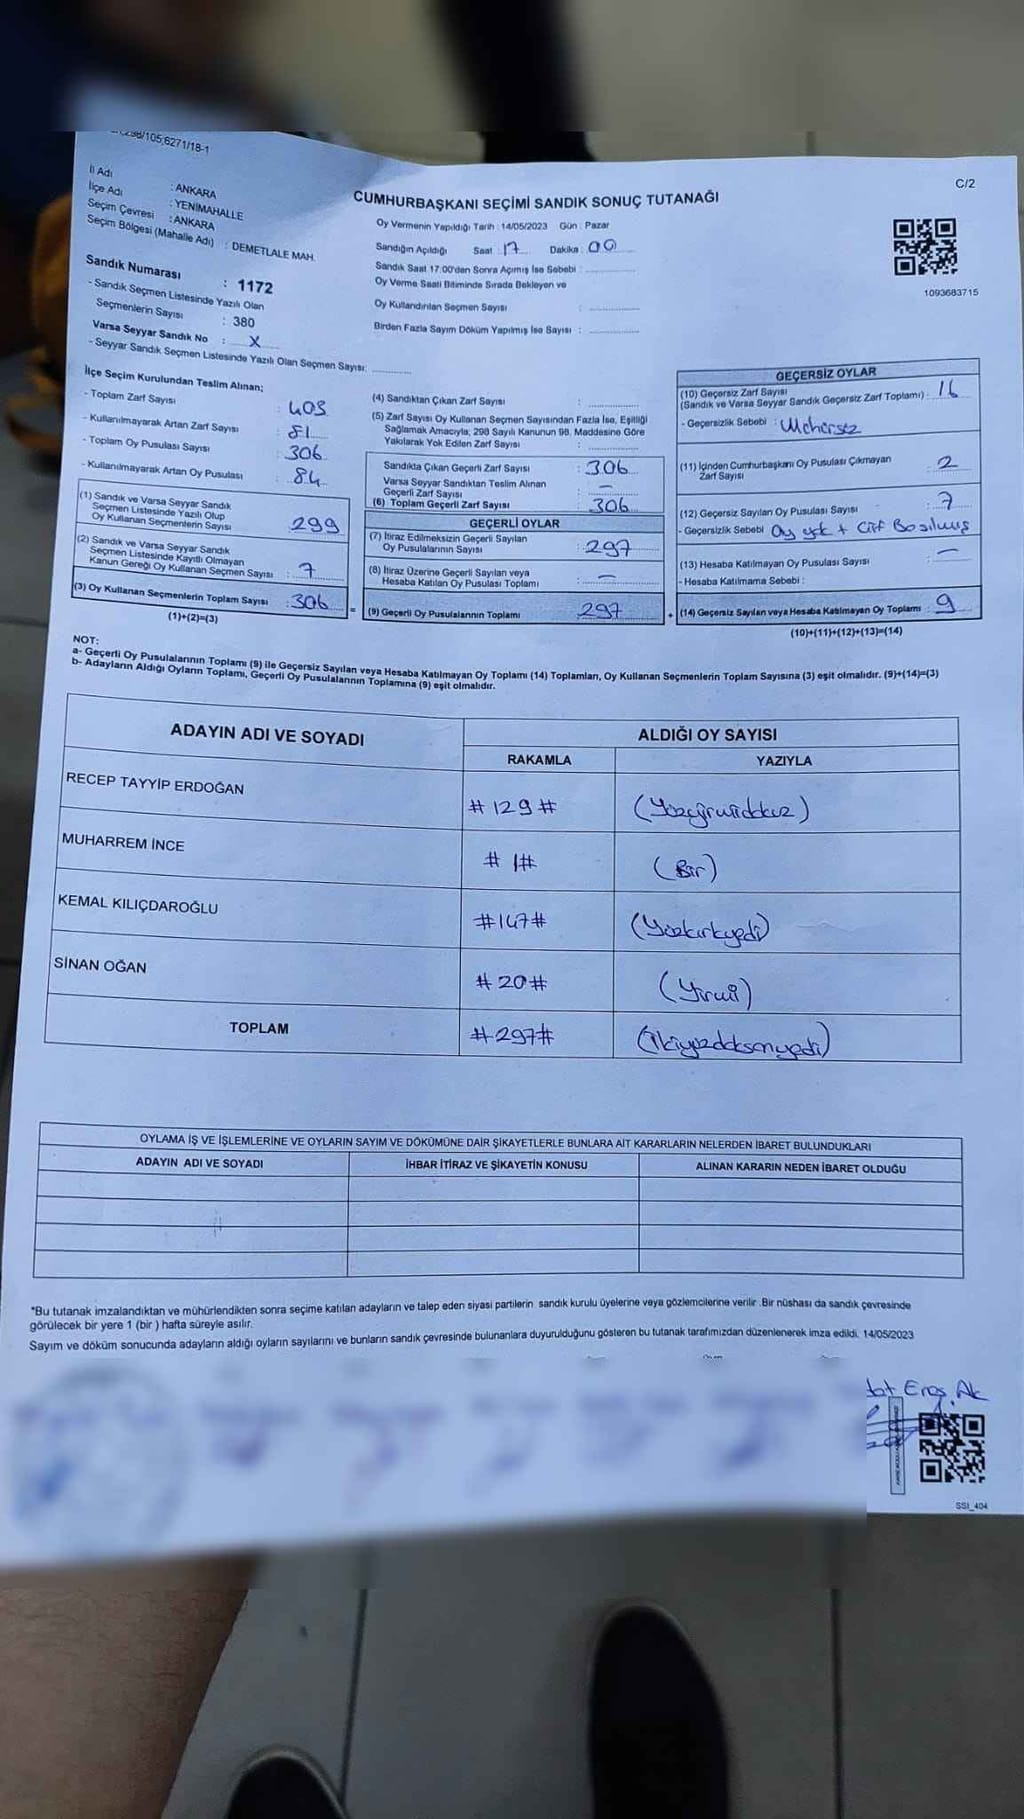 298/105;6271/18-1
C/2
İl Adı : ANKARA
İlçe Adı : YENİMAHALLE
Seçim Çevresi : ANKARA
Seçim Bölgesi (Mahalle Adı) : DEMETLALE MAH.
Sandık Numarası : 1172
- Sandık Seçmen Listesinde Yazılı Olan
Seçmenlerin Sayısı : 380
Varsa Seyyar Sandık No : X
- Seyyar Sandık Seçmen Listesinde Yazılı Olan Seçmen Sayısı:
CUMHURBAŞKANI SEÇİMİ SANDIK SONUÇ TUTANAĞI
Oy Vermenin Yapıldığı Tarih : 14/05/2023 Gün : Pazar
Sandığın Açıldığı Saat : 17 Dakika : 00
Sandık Saat 17:00'den Sonra Açımış İse Sebebi :
Oy Verme Saati Bitiminde Sırada Bekleyen ve
Oy Kullandırılan Seçmen Sayısı :
Birden Fazla Sayım Döküm Yapılmış İse Sayısı :
1093683715
İlçe Seçim Kurulundan Teslim Alınan;
- Toplam Zarf Sayısı : 403
- Kullanılmayarak Artan Zarf Sayısı : 81
- Toplam Oy Pusulası Sayısı : 306
- Kullanılmayarak Artan Oy Pusulası : 84
(1) Sandık ve Varsa Seyyar Sandık
Seçmen Listesinde Yazılı Olup
Oy Kullanan Seçmenlerin Sayısı : 299
(2) Sandık ve Varsa Seyyar Sandık
Seçmen Listesinde Kayıtlı Olmayan
Kanun Gereği Oy Kullanan Seçmen Sayısı : 7
(3) Oy Kullanan Seçmenlerin Toplam Sayısı : 306
(1)+(2)=(3)
(4) Sandıktan Çıkan Zarf Sayısı :
(5) Zarf Sayısı Oy Kullanan Seçmen Sayısından Fazla İse, Eşitliği
Sağlamak Amacıyla; 298 Sayılı Kanunun 98. Maddesine Göre
Yakılarak Yok Edilen Zarf Sayısı :
Sandıkta Çıkan Geçerli Zarf Sayısı : 306
Varsa Seyyar Sandıktan Teslim Alınan
Geçerli Zarf Sayısı : -
(6) Toplam Geçerli Zarf Sayısı : 306
GEÇERLİ OYLAR
(7) İtiraz Edilmeksizin Geçerli Sayılan
Oy Pusulalarının Sayısı : 297
(8) İtiraz Üzerine Geçerli Sayılan veya
Hesaba Katılan Oy Pusulası Toplamı : -
= (9) Geçerli Oy Pusulalarının Toplamı : 297
GEÇERSİZ OYLAR
(10) Geçersiz Zarf Sayısı
(Sandık ve Varsa Seyyar Sandık Geçersiz Zarf Toplamı) : 16
- Geçersizlik Sebebi : Mühürsüz
(11) İçinden Cumhurbaşkanı Oy Pusulası Çıkmayan
Zarf Sayısı : 2
(12) Geçersiz Sayılan Oy Pusulası Sayısı : 7
- Geçersizlik Sebebi : Oy yok + Çift Basılmış
(13) Hesaba Katılmayan Oy Pusulası Sayısı : -
- Hesaba Katılmama Sebebi :
+ (14) Geçersiz Sayılan veya Hesaba Katılmayan Oy Toplamı : 9
(10)+(11)+(12)+(13)=(14)
NOT:
a- Geçerli Oy Pusulalarının Toplamı (9) ile Geçersiz Sayılan veya Hesaba Katılmayan Oy Toplamı (14) Toplamları, Oy Kullanan Seçmenlerin Toplam Sayısına (3) eşit olmalıdır. (9)+(14)=(3)
b- Adayların Aldığı Oyların Toplamı, Geçerli Oy Pusulalarının Toplamına (9) eşit olmalıdır.
ADAYIN ADI VE SOYADI
ALDIĞI OY SAYISI
RAKAMLA YAZIYLA
RECEP TAYYİP ERDOĞAN # 129 # (Yüzyirmidokuz)
MUHARREM İNCE # 1# (Bir)
KEMAL KILIÇDAROĞLU #147# (Yüzkırkyedi)
SİNAN OĞAN # 20# (Yirmi)
TOPLAM # 297# (İkiyüzdoksanyedi)
OYLAMA İŞ VE İŞLEMLERİNE VE OYLARIN SAYIM VE DÖKÜMÜNE DAİR ŞİKAYETLERLE BUNLARA AİT KARARLARIN NELERDEN İBARET BULUNDUKLARI
ADAYIN ADI VE SOYADI İHBAR İTİRAZ VE ŞİKAYETİN KONUSU ALINAN KARARIN NEDEN İBARET OLDUĞU
*Bu tutanak imzalandıktan ve mühürlendikten sonra seçime katılan adayların ve talep eden siyasi partilerin sandık kurulu üyelerine veya gözlemcilerine verilir .Bir nüshası da sandık çevresinde
görülecek bir yere 1 (bir ) hafta süreyle asılır.
Sayım ve döküm sonucunda adayların aldığı oyların sayılarını ve bunların sandık çevresinde bulunanlara duyurulduğunu gösteren bu tutanak tarafımızdan düzenlenerek imza edildi. 14/05/2023
SSI_404